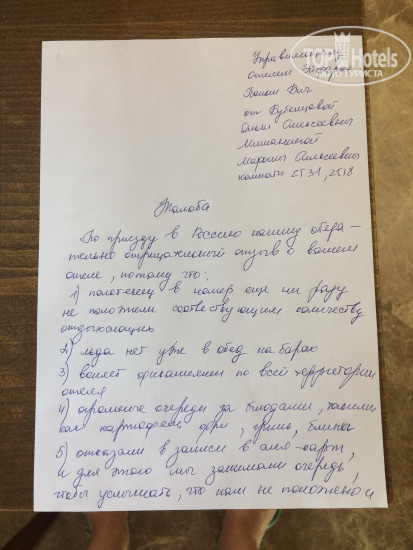 TOPHotels
Управляющему
Отелем
от Бубенцовой
Ольги Алексеевны
Марины Алексеевны
комнаты 2531, 2518
Жалоба
По приезду в Россию напишу обяза-
тельно отрицательный отзыв о вашем
отеле, потому что:
1) полотенец в номер ещё ни разу
не положили соотвествующим количеству
отдыхающих
2) льда нет уже в обед на барах
3) воняет фикалиями по всей территории
отеля
4) огромные очереди за блюдами, такими
как картофель фри, гриль, блины
5) отказали в записи в аля-карт,
и для этого мы занимали очередь,
чтобы услышать, что нам не положено и